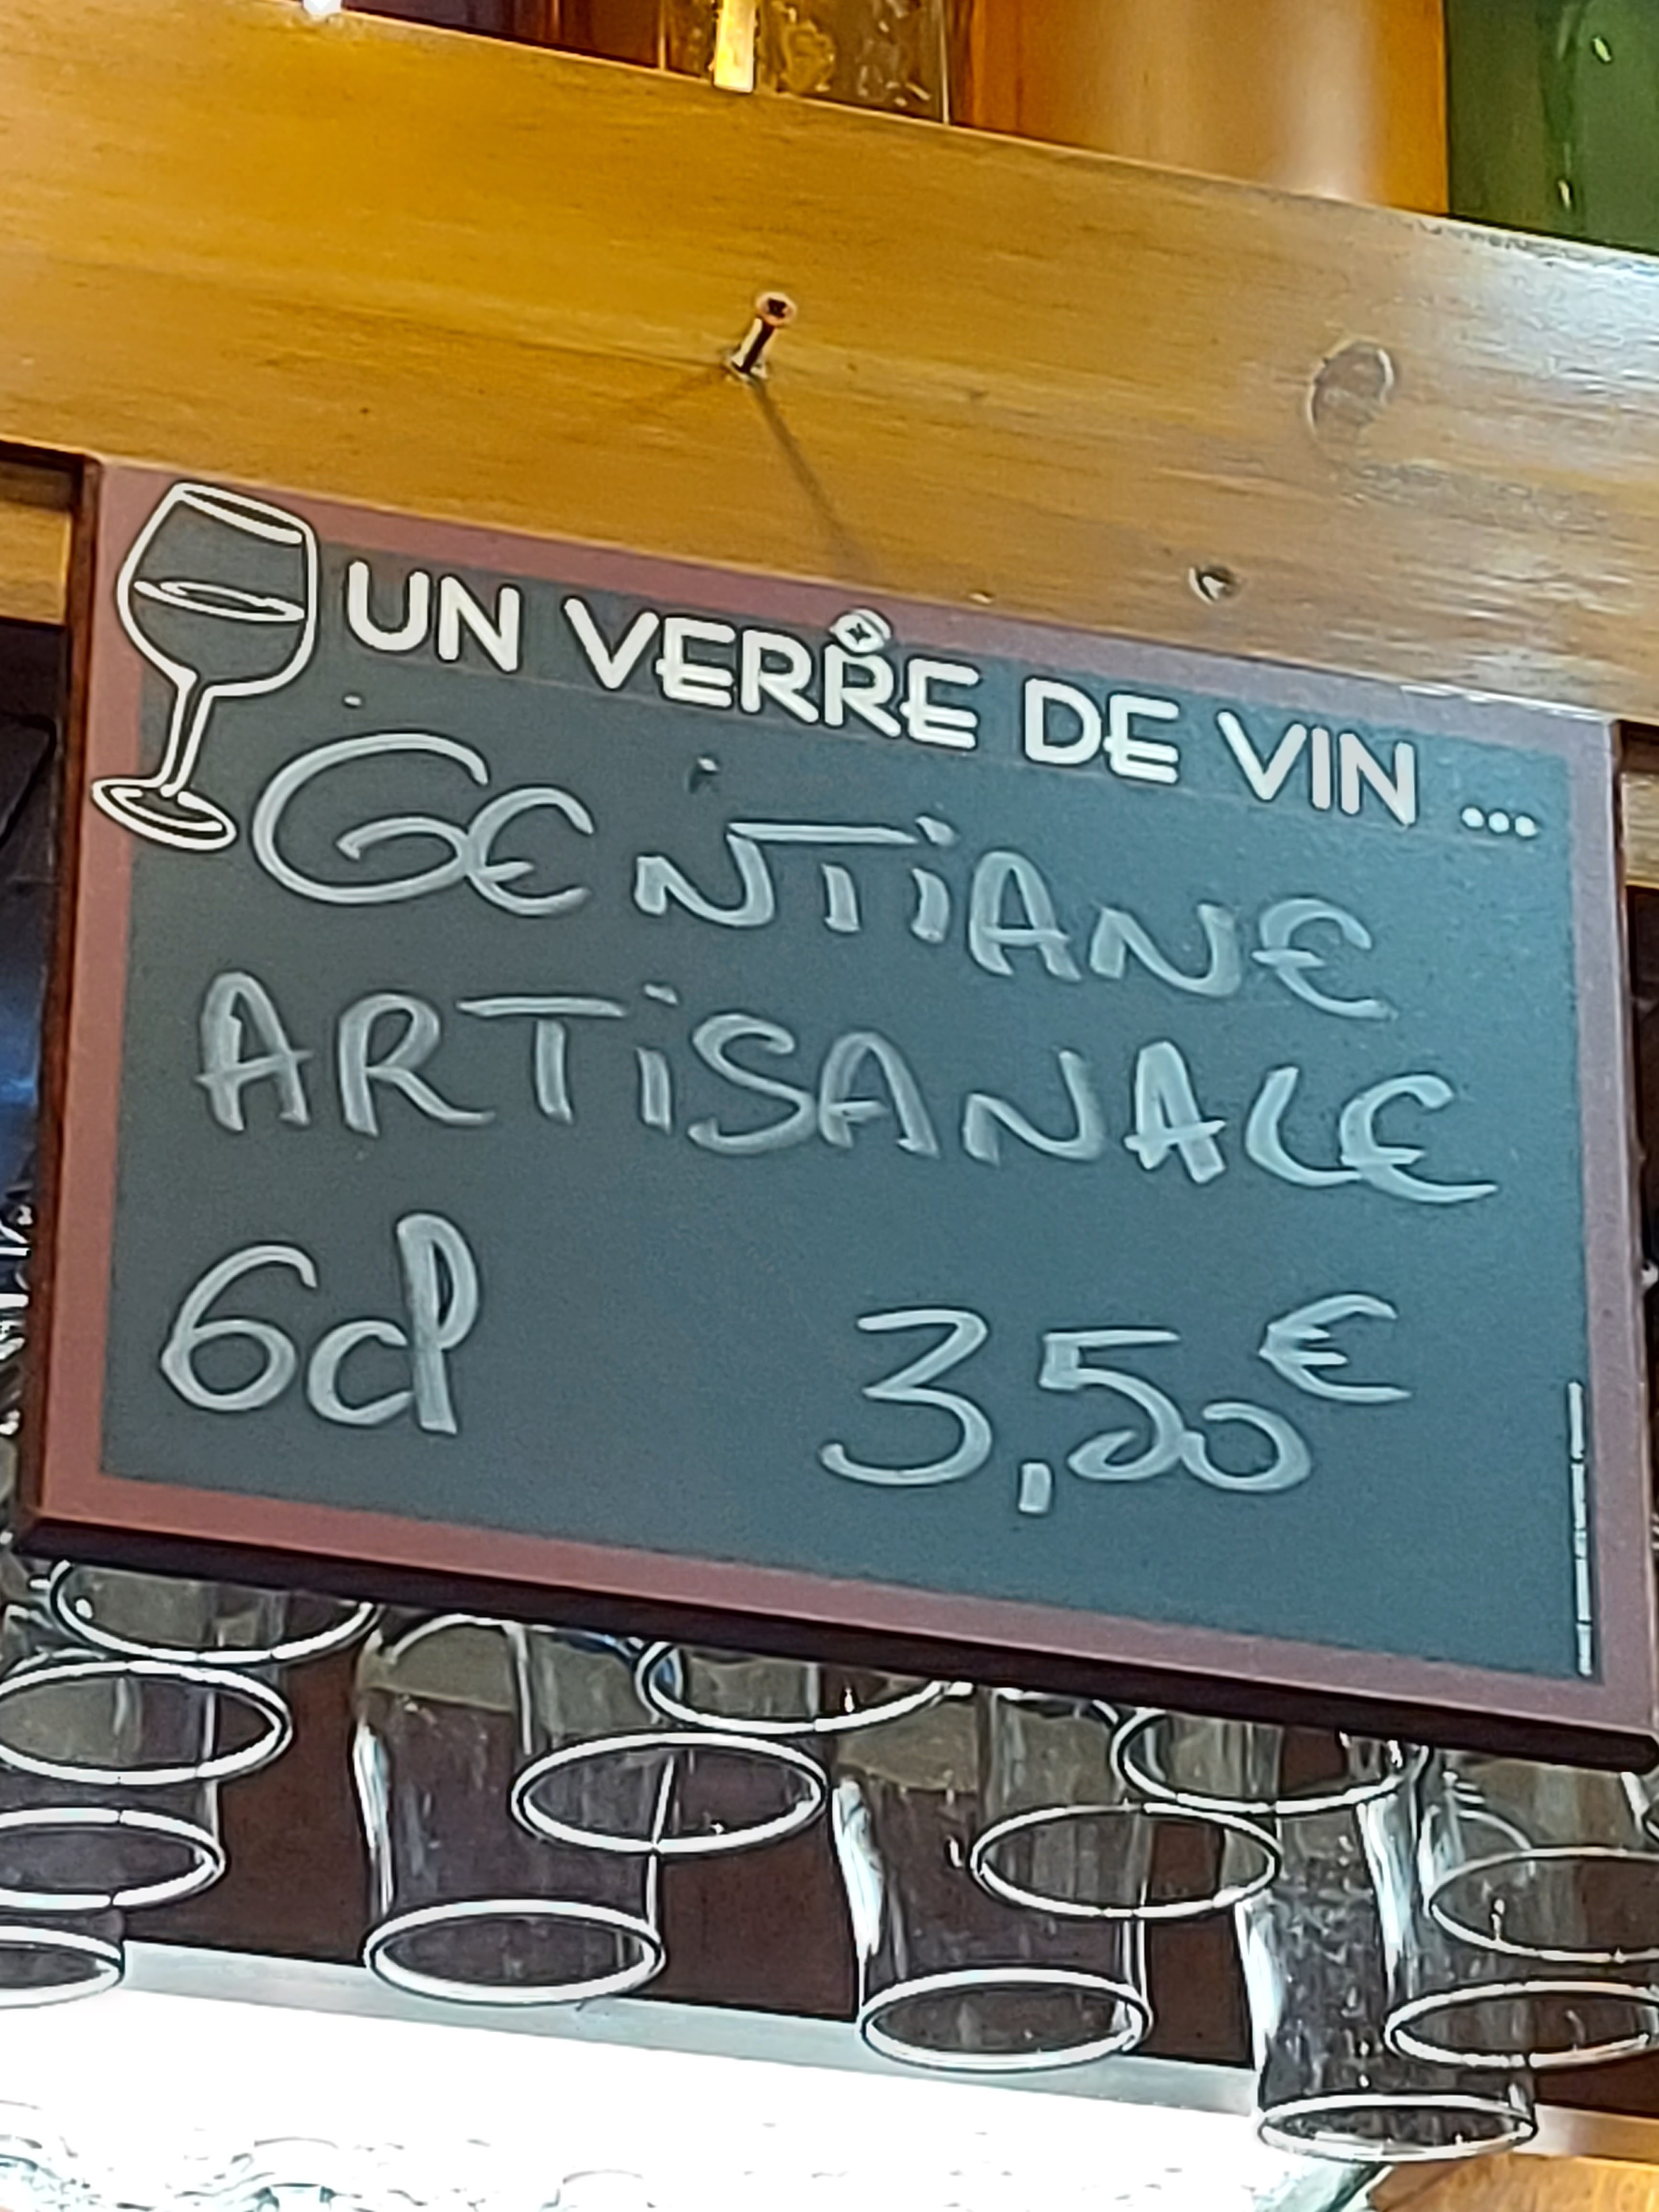 UN VERRE DE VIN ...
GENTIANE
ARTiSANALE
6cl 3,50€